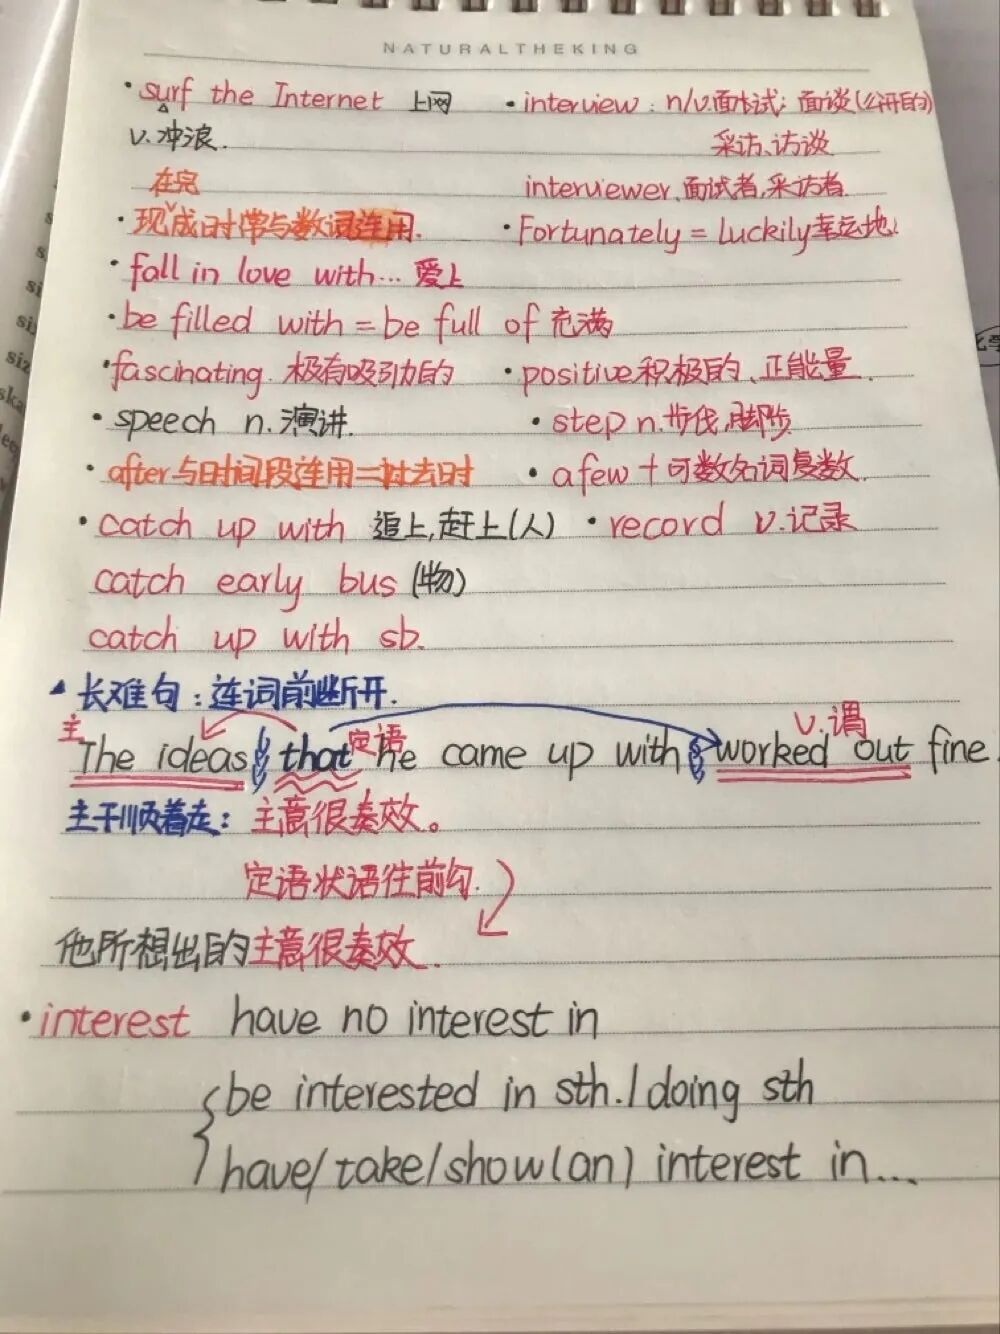 NATURALTHEKING
· surf the Internet 上网 · interview : n/v.面试; 面谈(公开的)
v.冲浪. 采访、访谈
在完 interviewer.面试者,采访者
· 现成时常与数词连用. · Fortunately = Luckily幸运地
· fall in love with... 爱上
· be filled with = be full of 充满
· fascinating. 极有吸引力的 · positive积极的、正能量.
· speech n.演讲. · step n.步伐,脚步
· after与时间段连用=过去时 · a few + 可数名词复数.
· catch up with 追上,赶上(人) · record v.记录
catch early bus (物)
catch up with sb.
长难句:连词前断开.
主 定语 v.谓
The ideas that he came up with worked out fine.
主干顺着走: 主意很奏效。
定语状语往前勾.
他所想出的主意很奏效.
· interest have no interest in
be interested in sth. / doing sth
have/take/show(an) interest in...